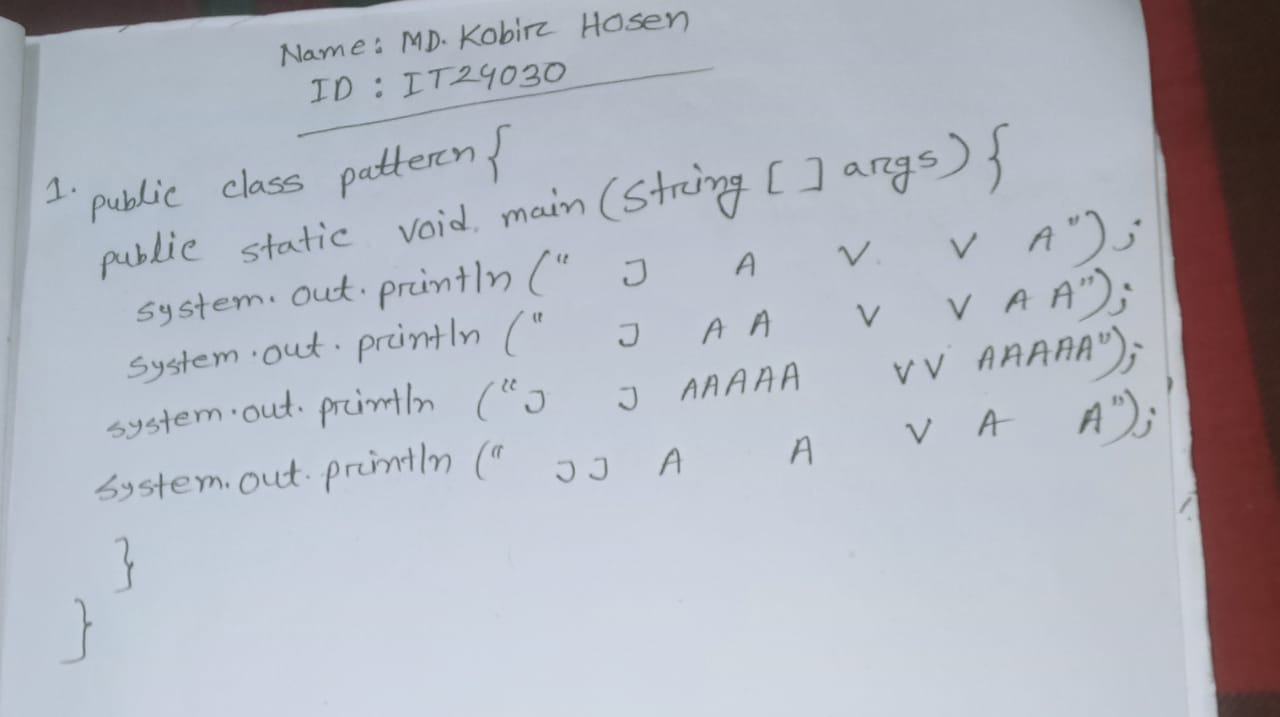 Name: MD. Kobir Hosen
ID : IT24030
1. public class pattern {
public static void main (String [ ] args) {
system. out. println (" J A V V A");
system. out. println (" J A A V V A A");
system. out. println ("J J AAAAA VV AAAAA");
system. out. println (" JJ A A V A A");
}
}